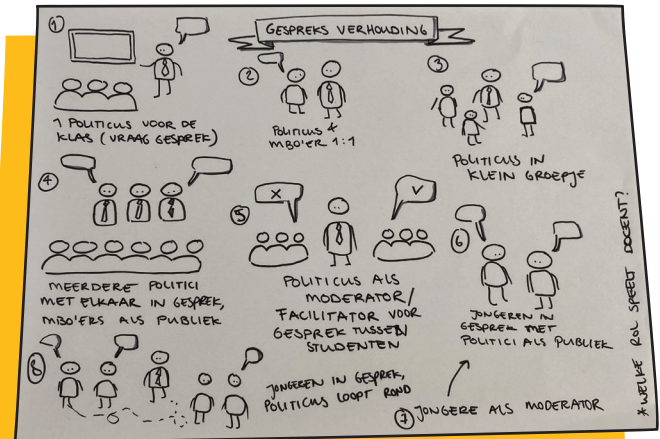 GESPREKS VERHOUDING
1
1 POLITICUS VOOR DE
KLAS (VRAAG GESPREK)
2
POLITICUS &
MBO'ER 1:1
3
POLITICUS IN
KLEIN GROEPJE
4
MEERDERE POLITICI
MET ELKAAR IN GESPREK,
MBO'ERS ALS PUBLIEK
5
X
V
POLITICUS ALS
MODERATOR/
FACILITATOR VOOR
GESPREK TUSSEN
STUDENTEN
6
JONGEREN IN
GESPREK MET
POLITICI ALS PUBLIEK
7 JONGERE ALS MODERATOR
8
JONGEREN IN GESPREK,
POLITICUS LOOPT ROND
* WELKE ROL SPEELT DOCENT?